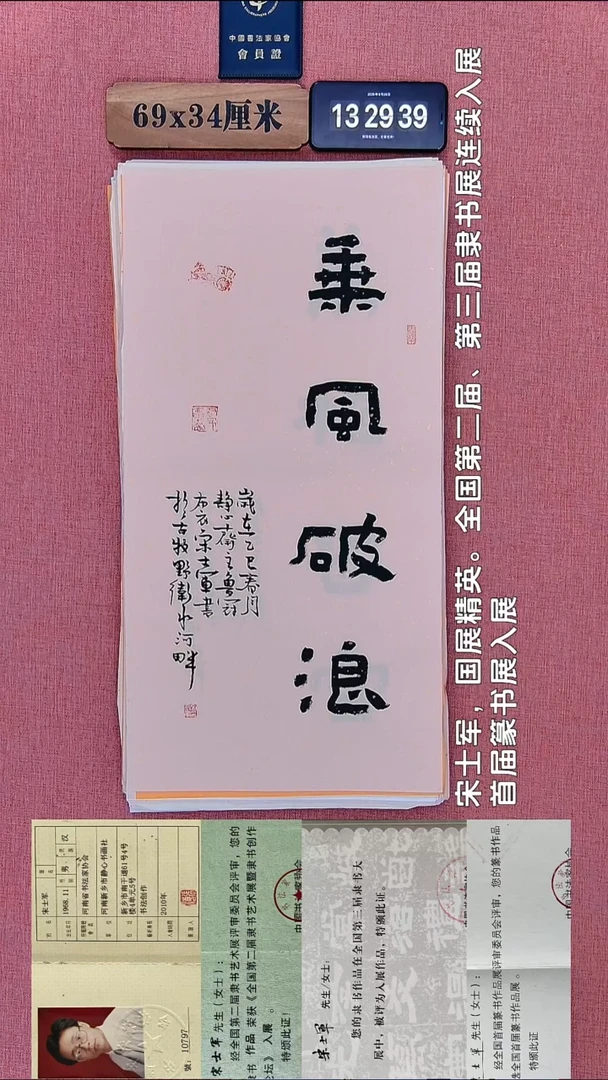 中國書法家協會
會員證
69x34厘米
13 29 39
乘風破浪
歲在乙巳春月
靜心齋主魯冠
布衣宋士軍書
於古牧野衛水河畔
宋士军，国展精英。全国第二届、第三届隶书展连续入展
首届篆书展入展
宋士军
1968.11
男
汉
河南省书法家协会
河南新乡市静心书画社
新乡市南干道61号4号
楼4单元5号
书法创作
2010年
號：10797
宋士军 先生（女士）：
经全国第二届隶书艺术展评审委员会评审，您的
隶书 作品 荣获《全国第二届隶书艺术展暨隶书创作
论坛》入展 。
特颁此证！
宋士军 先生/女士：
您的隶书作品在全国第三届隶书大
展中，被评为入展作品，特颁此证。
士军 先生（女士）：
经全国首届篆书作品展评审委员会评审，您的篆书作品
选全国首届篆书作品展。
特颁此证